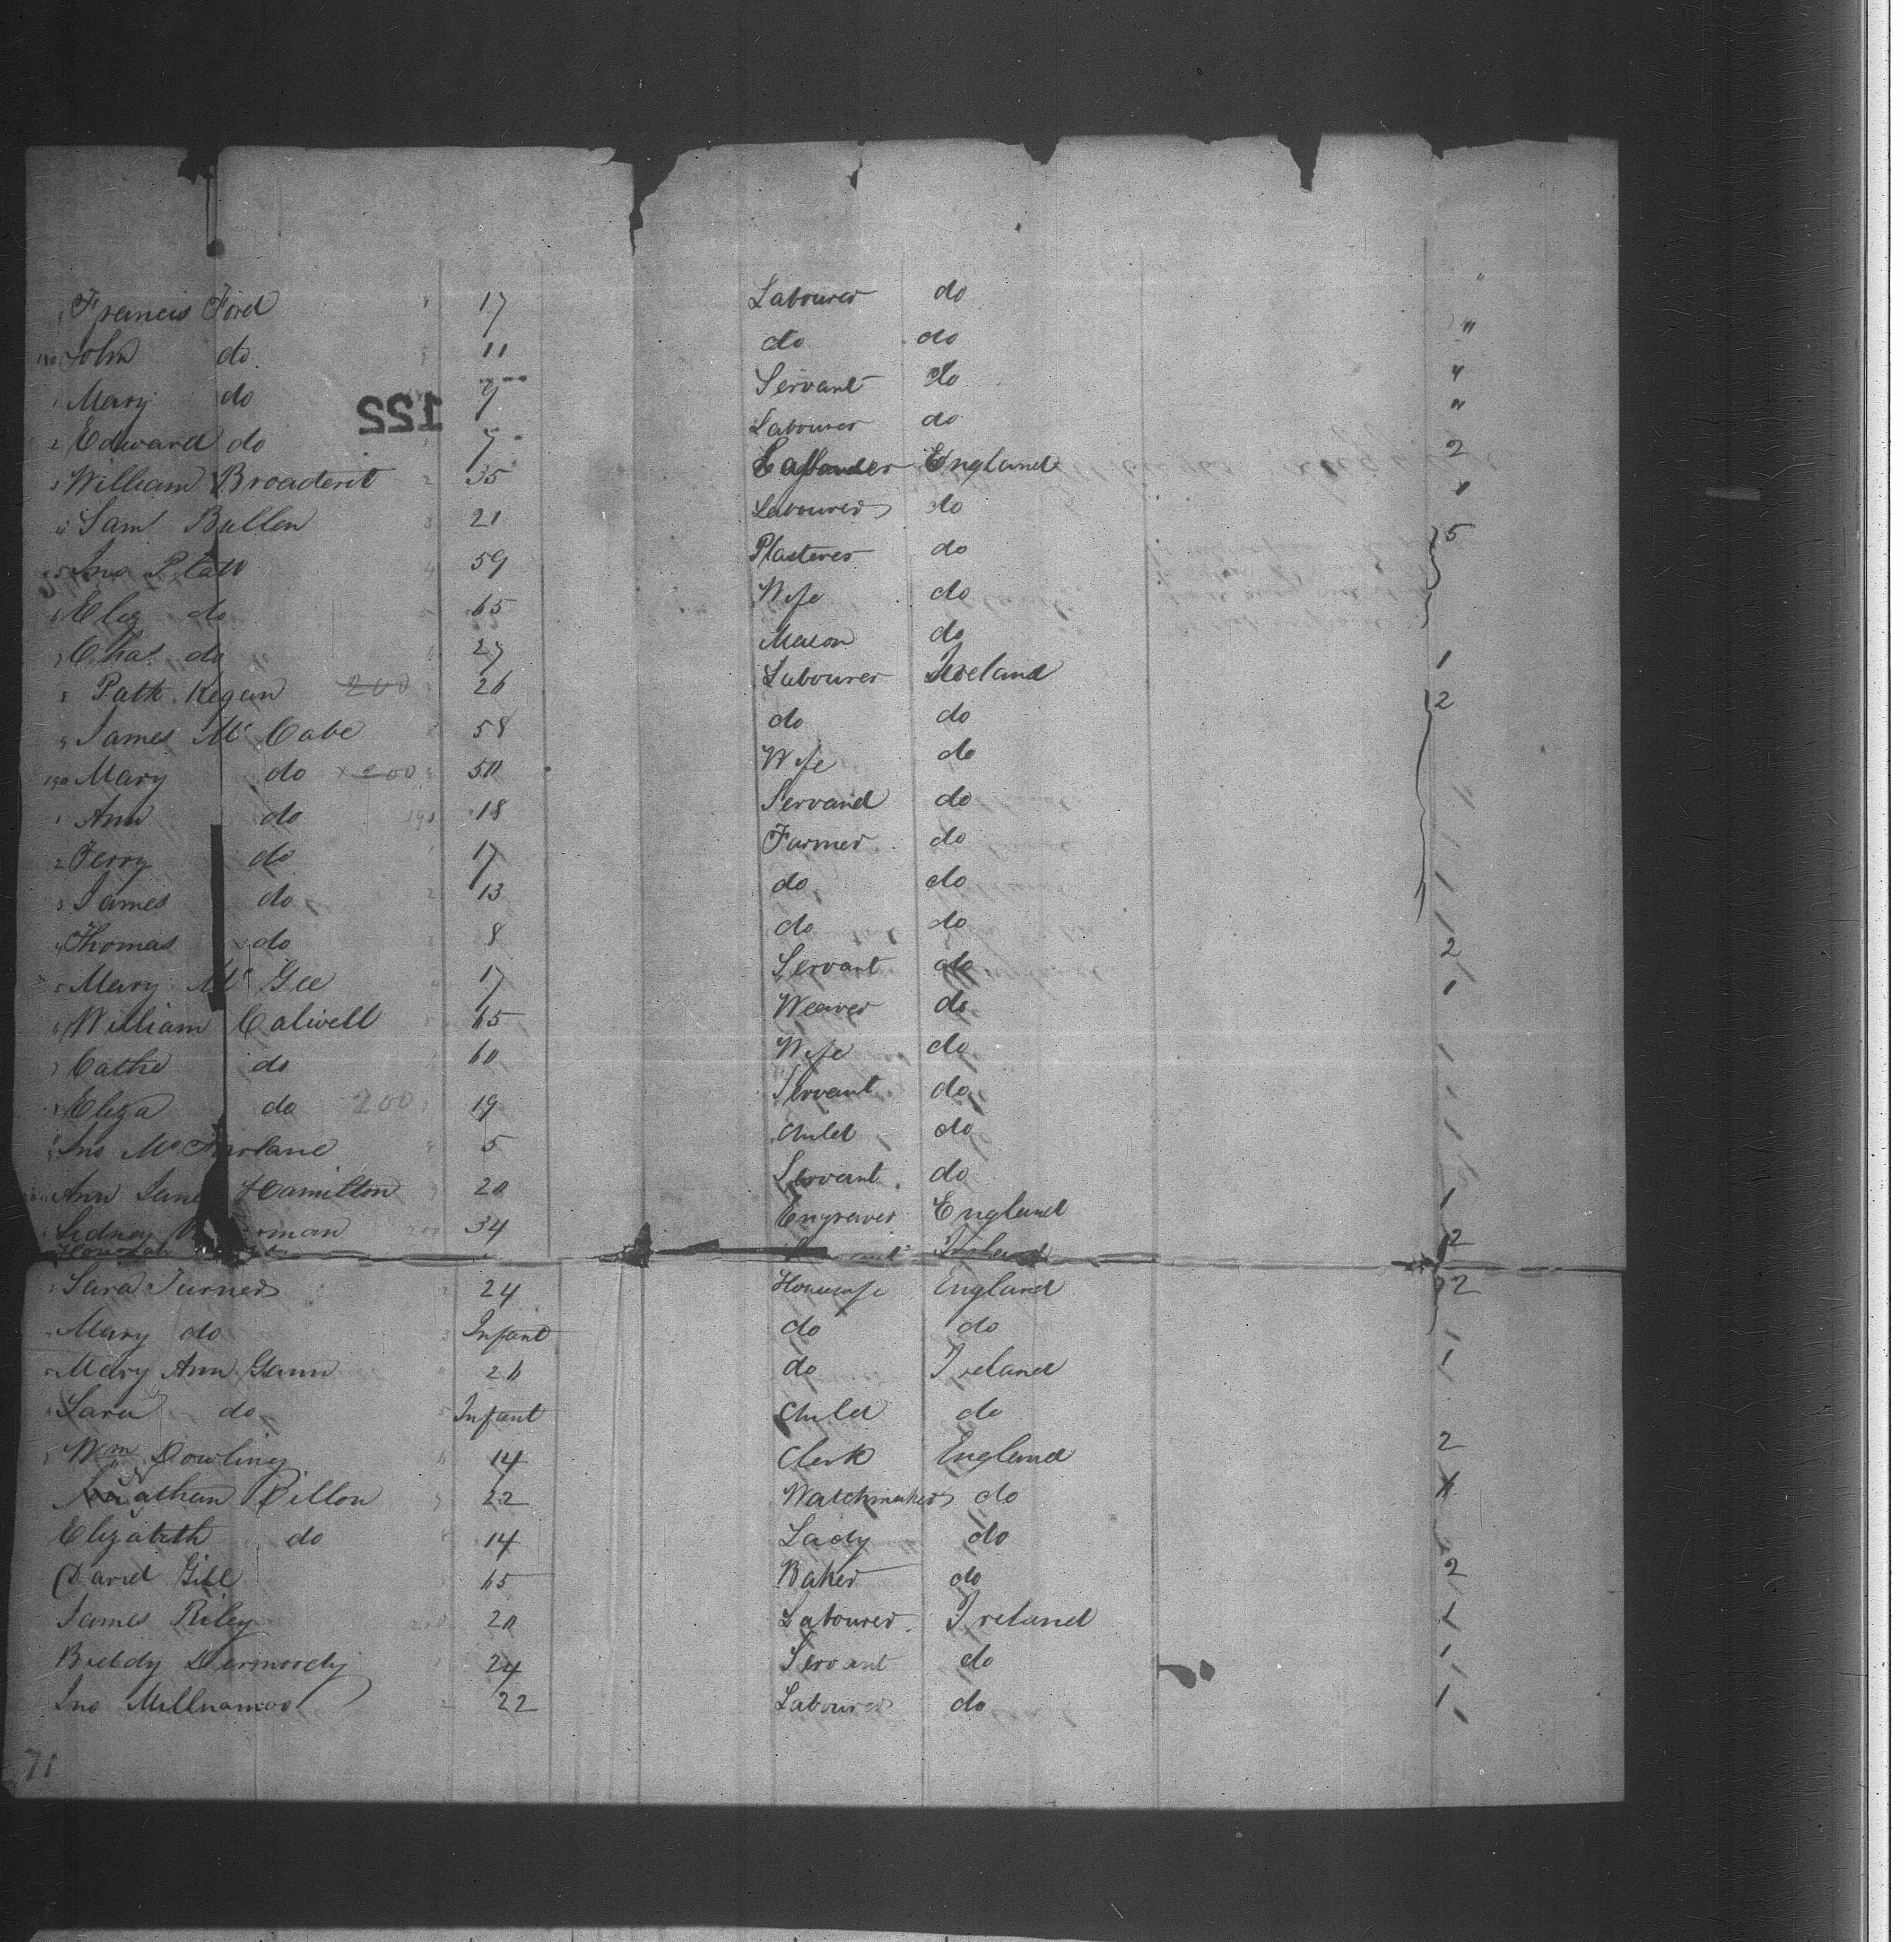 Francis Ford 17 Labourer do "
John do 11 do do "
Mary do 9 Servant do "
2 Edward do 7 Labourer do "
3 William Broaderit 35 England 2
Saml Bullen 21 Labourer do 1
5 Jno Platt 59 Plasterer do 5
6 Eliz do 65 Wife do
7 Chas do 27 Mason do
8 Patk Kegan 200 26 Labourer Ireland 1
9 James Mc Cabe 58 do do 2
190 Mary do x 200 50 Wife do
1 Ann do 18 Servand do
2 Terry do 17 Farmer do
3 James do 13 do do
4 Thomas do 8 do do
5 Mary Mc Gee 17 Servant do 2
6 William Calwell 65 Weaver do 1
7 Cathe do 60 Wife do
8 Eliza do 200 19 Servant do
Jno Mc Farlane 5 Child do
Ann Jane Hamilton 20 Servant do
Sidney 34 Engraver England 1
Honorah Ireland 2
Sara Turner 24 Housewife England 2
Mary do Infant do do
Mary Ann Gunn 26 do Ireland 1
Sara do Infant Child do
Wm Dowling 14 Clerk England 2
Dillon 22 Watchmaker do
Elizabeth do 14 Lady do
David Gill 65 Baker do 2
James Riley 20 Labourer Ireland 1
Biddy Dermoody 24 Servant do 1
Jno 22 Labourer do 1
122
71